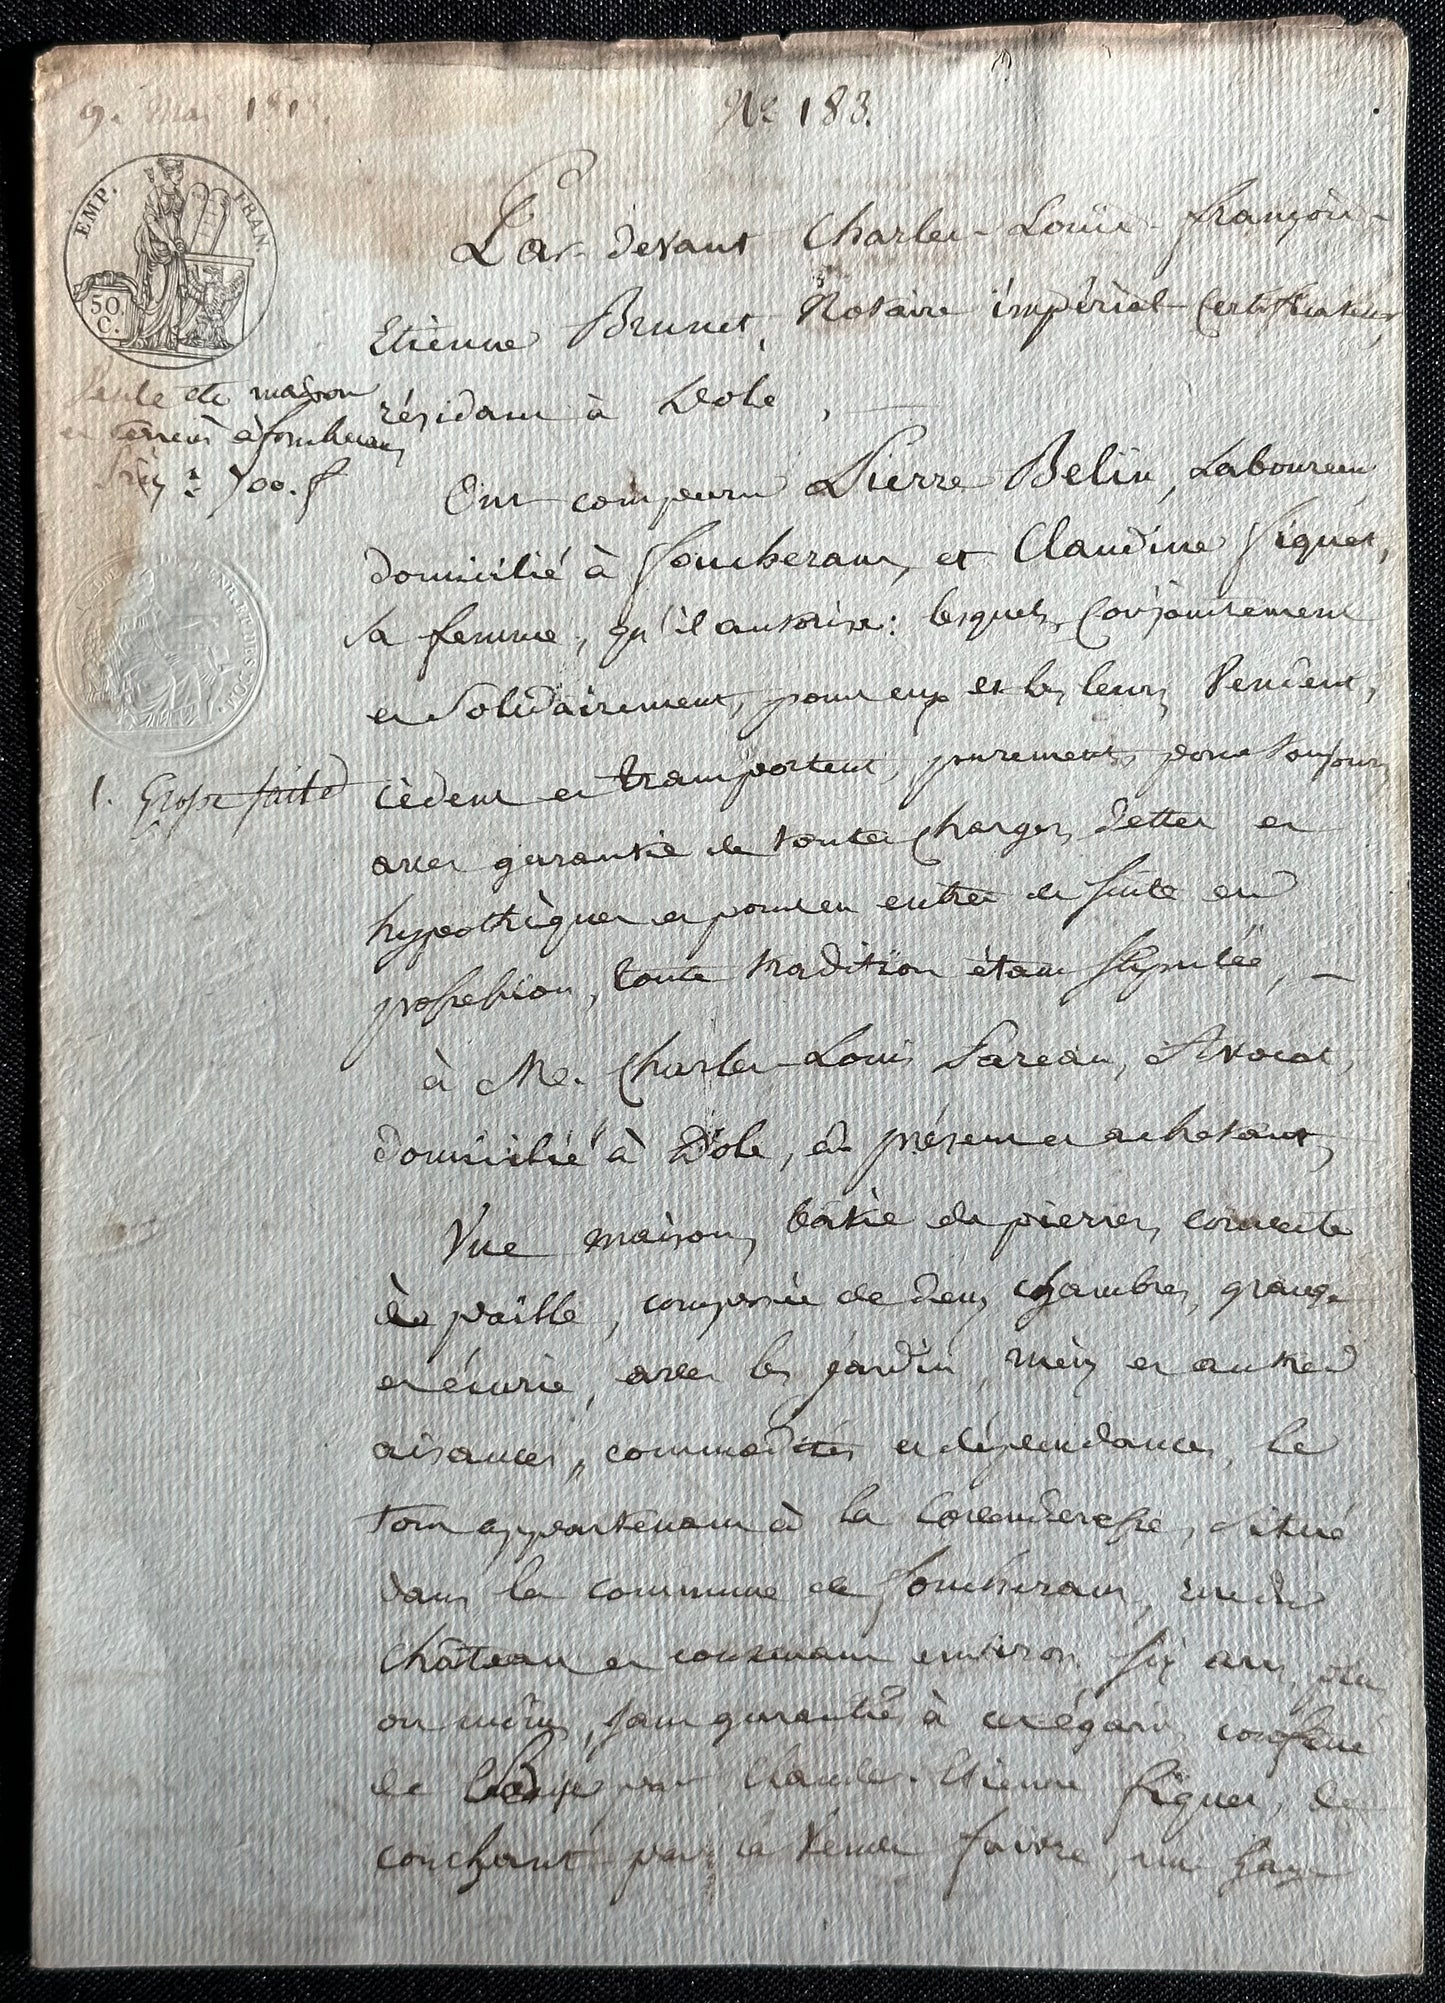 9. Mai 181
Nº 183.
EMP. FRAN.
50. C.
Par-devant Charles-Louis-françois-
Etienne Brunet, Notaire impérial Certificateur,
résidant à Dole,
Vente de maison
et terrein à foucherans
Prix : 700. f
Ont comparu Pierre Belin, Laboureur
domicilié à foucherans, et Claudine figuet,
sa femme, qu'il autorise: lesquels, Conjointement
et Solidairement, pour eux et les leurs, Vendent,
cèdent et transportent, purement, pour toujours
1. Grosse faite
avec garantie de toutes Charges, dettes et
hypothèques et pour en entrer de suite en
possession, toute tradition étant stipulée,
à Me. Charles-Louis Pareau, Avocat,
domicilié à Dole, présent et achetant,
Une maison, bâtie de pierres, couverte
de paille, composée de deux chambres, grange
et écurie, avec les jardin, meix et autres
aisances, commodités et dépendances, le
tout appartenant à la Covenderesse, situé
dans la commune de foucherans, rue du
château et contenant environ six ares, plus
ou moins, sans garantie à cet égard, confiné
de par Claude-Etienne figuet, de
couchant par la Veuve faivre, une haye